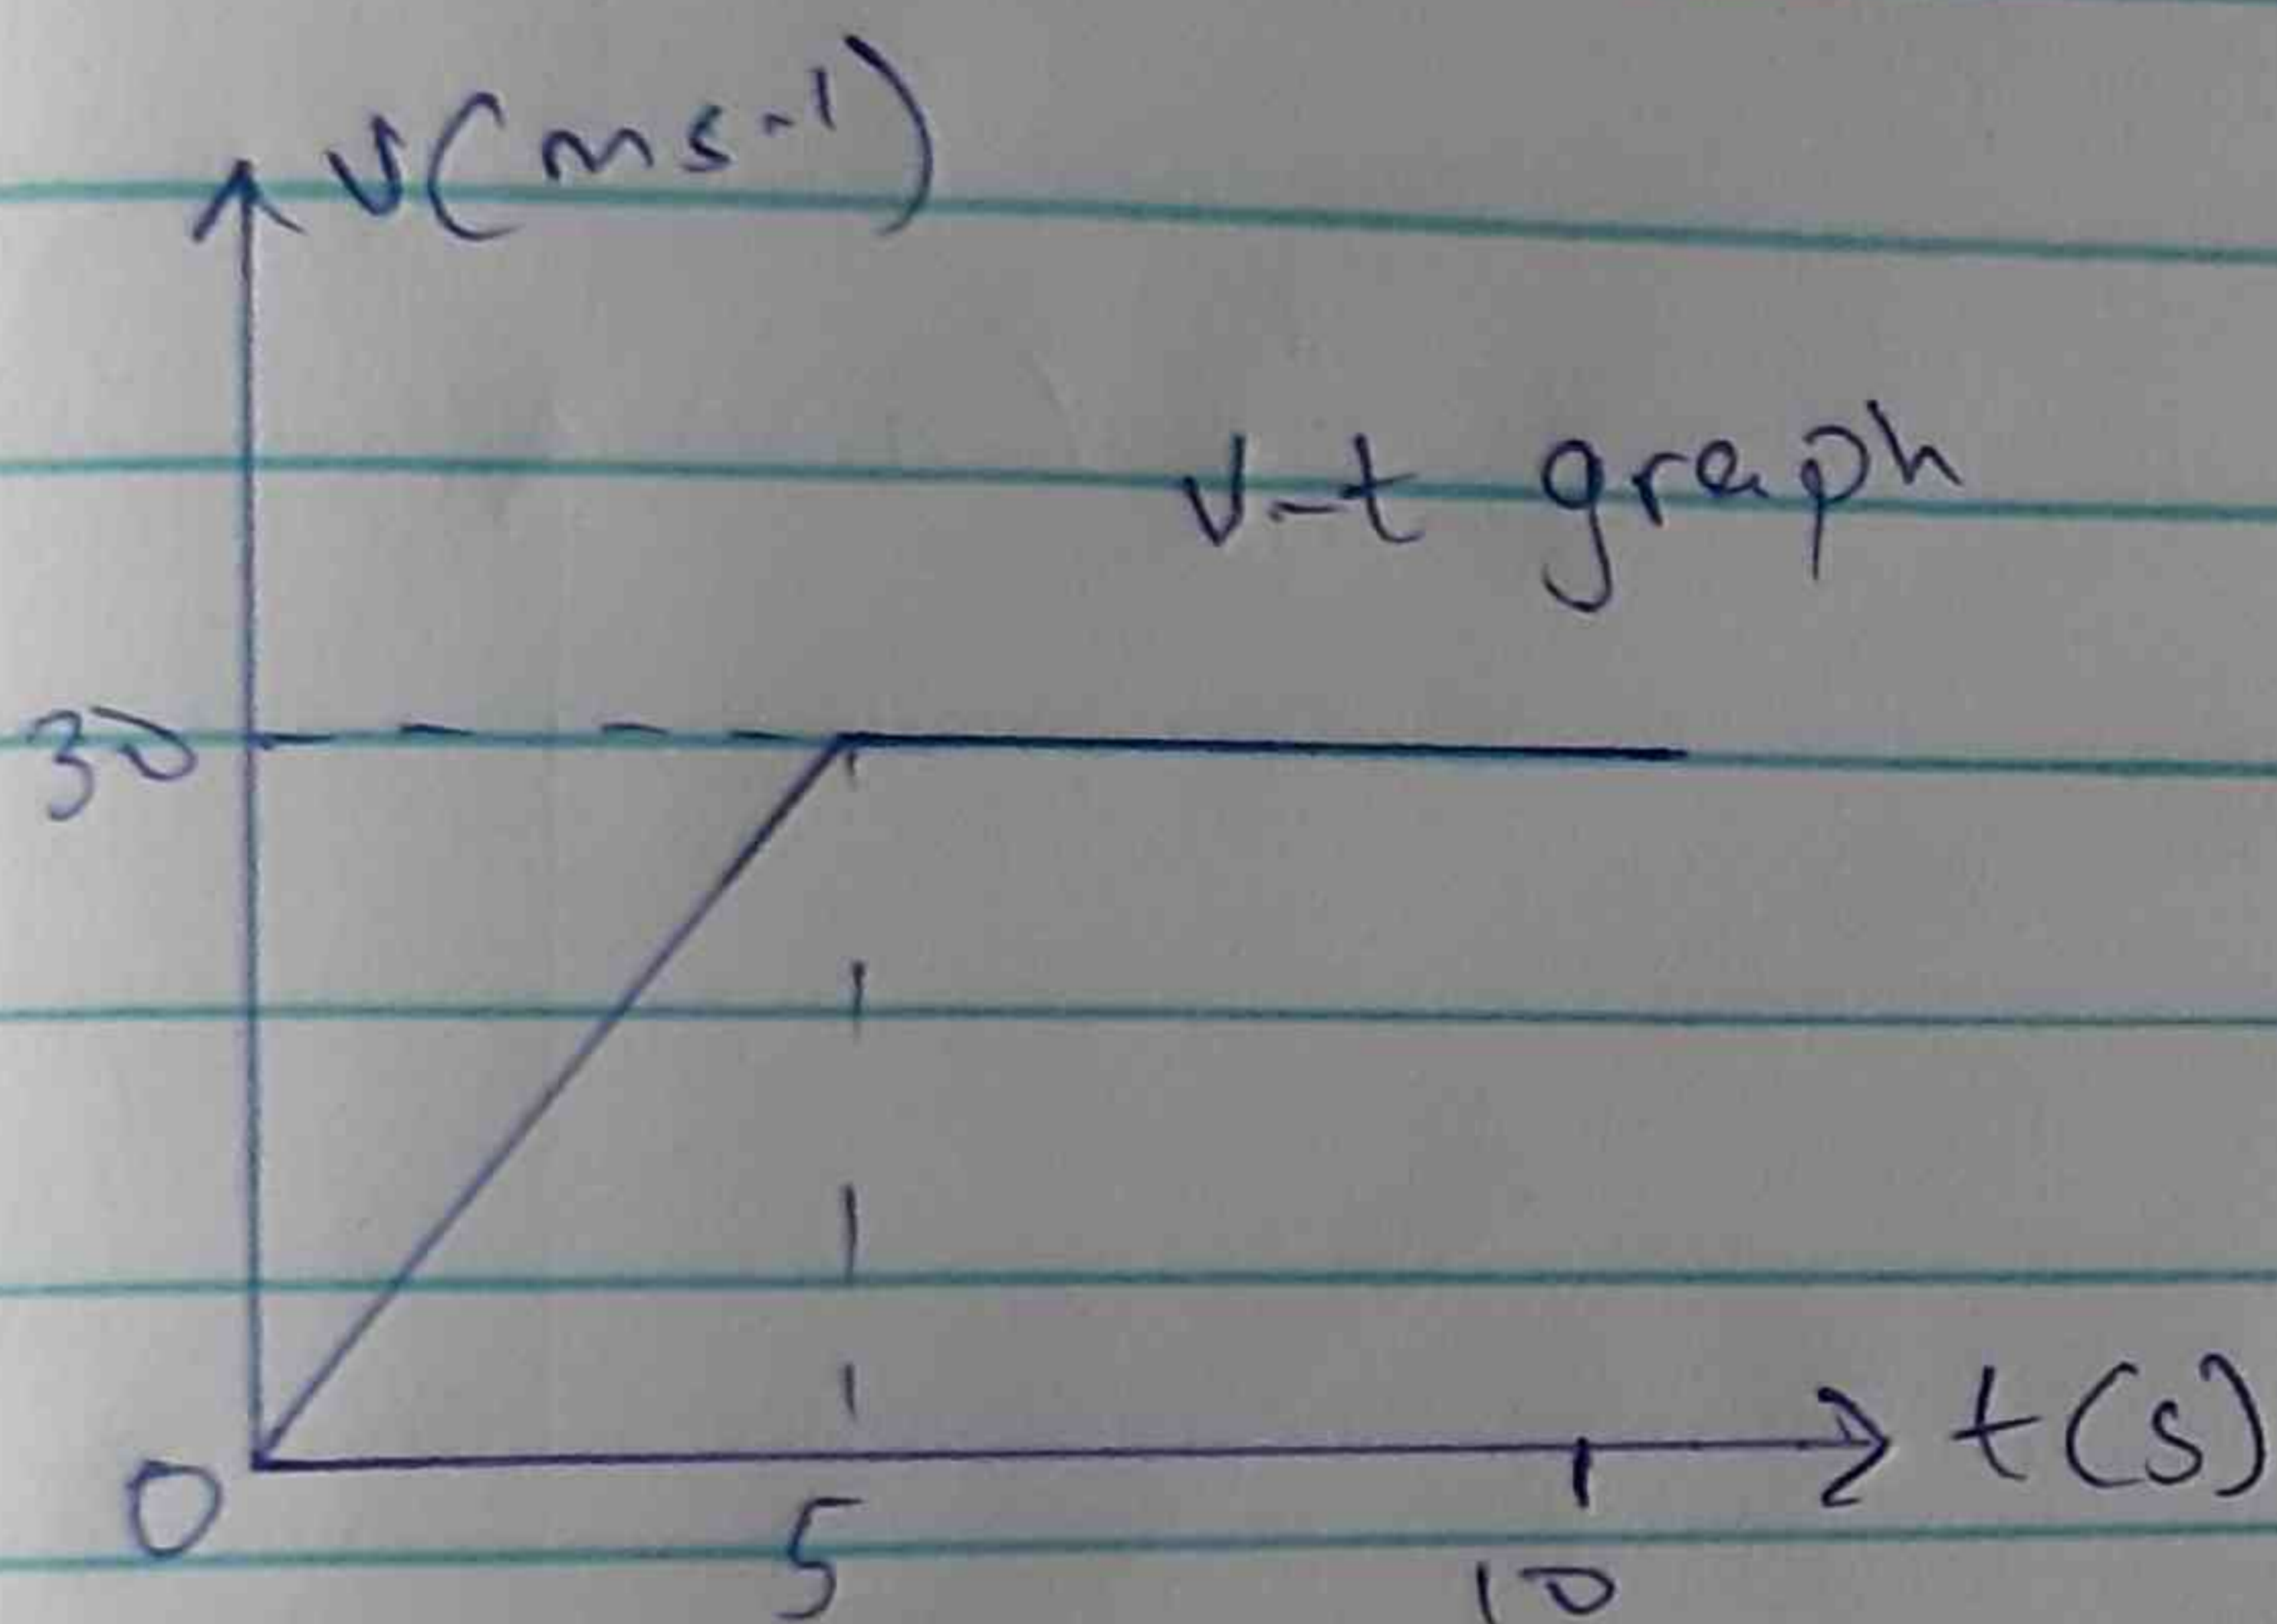 v(ms⁻¹)
v-t graph
30
0
5
10
t(s)